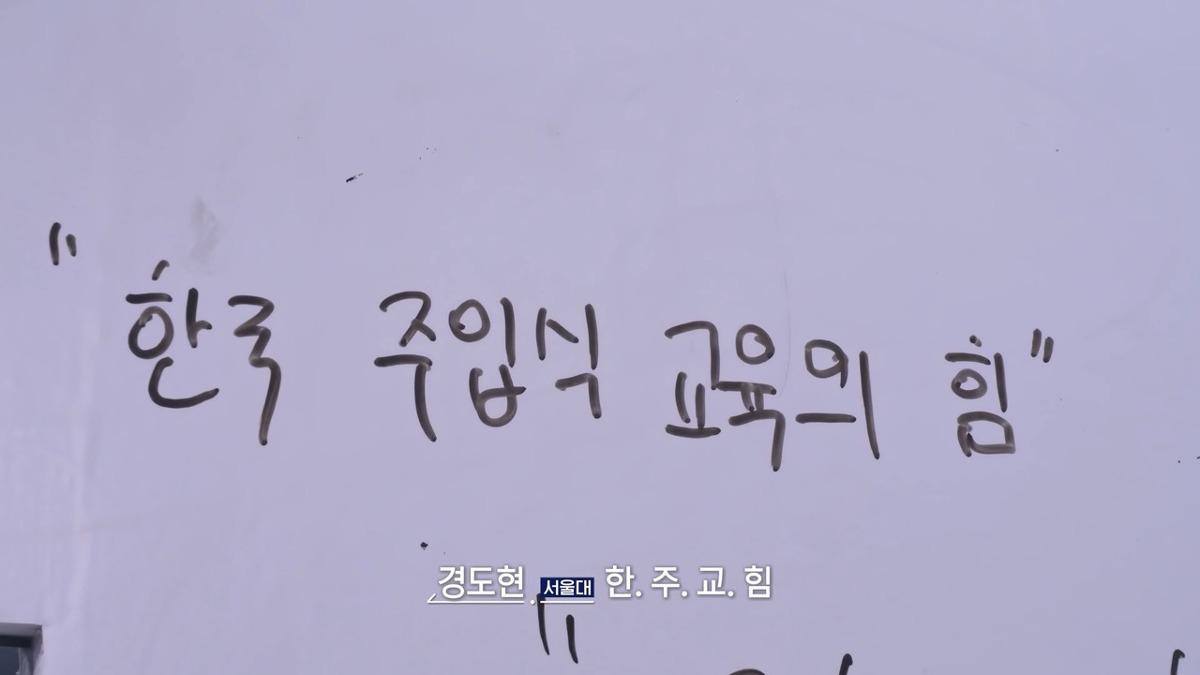 "한국 주입식 교육의 힘"
경도현 서울대 한. 주. 교. 힘
"